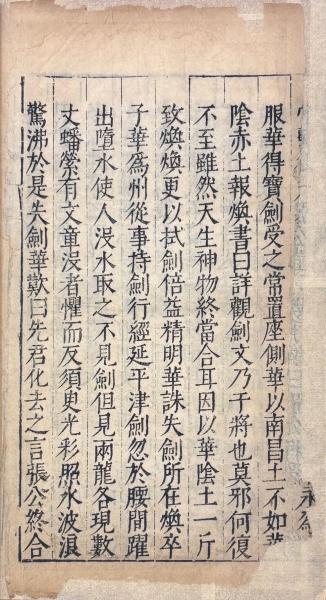 服華得寶劍受之常置座側華以南昌土不如華
陰赤土報煥書曰詳觀劍文乃干將也莫邪何復
不至雖然天生神物終當合耳因以華陰土一斤
致煥煥更以拭劍倍益精明華誅失劍所在煥卒
子華爲州從事持劍行經延平津劍忽於腰間躍
出墮水使人没水取之不見劍但見兩龍各現數
丈蟠縈有文章没者懼而反須臾光彩照水波浪
驚沸於是失劍華歎曰先君化去之言張公終合